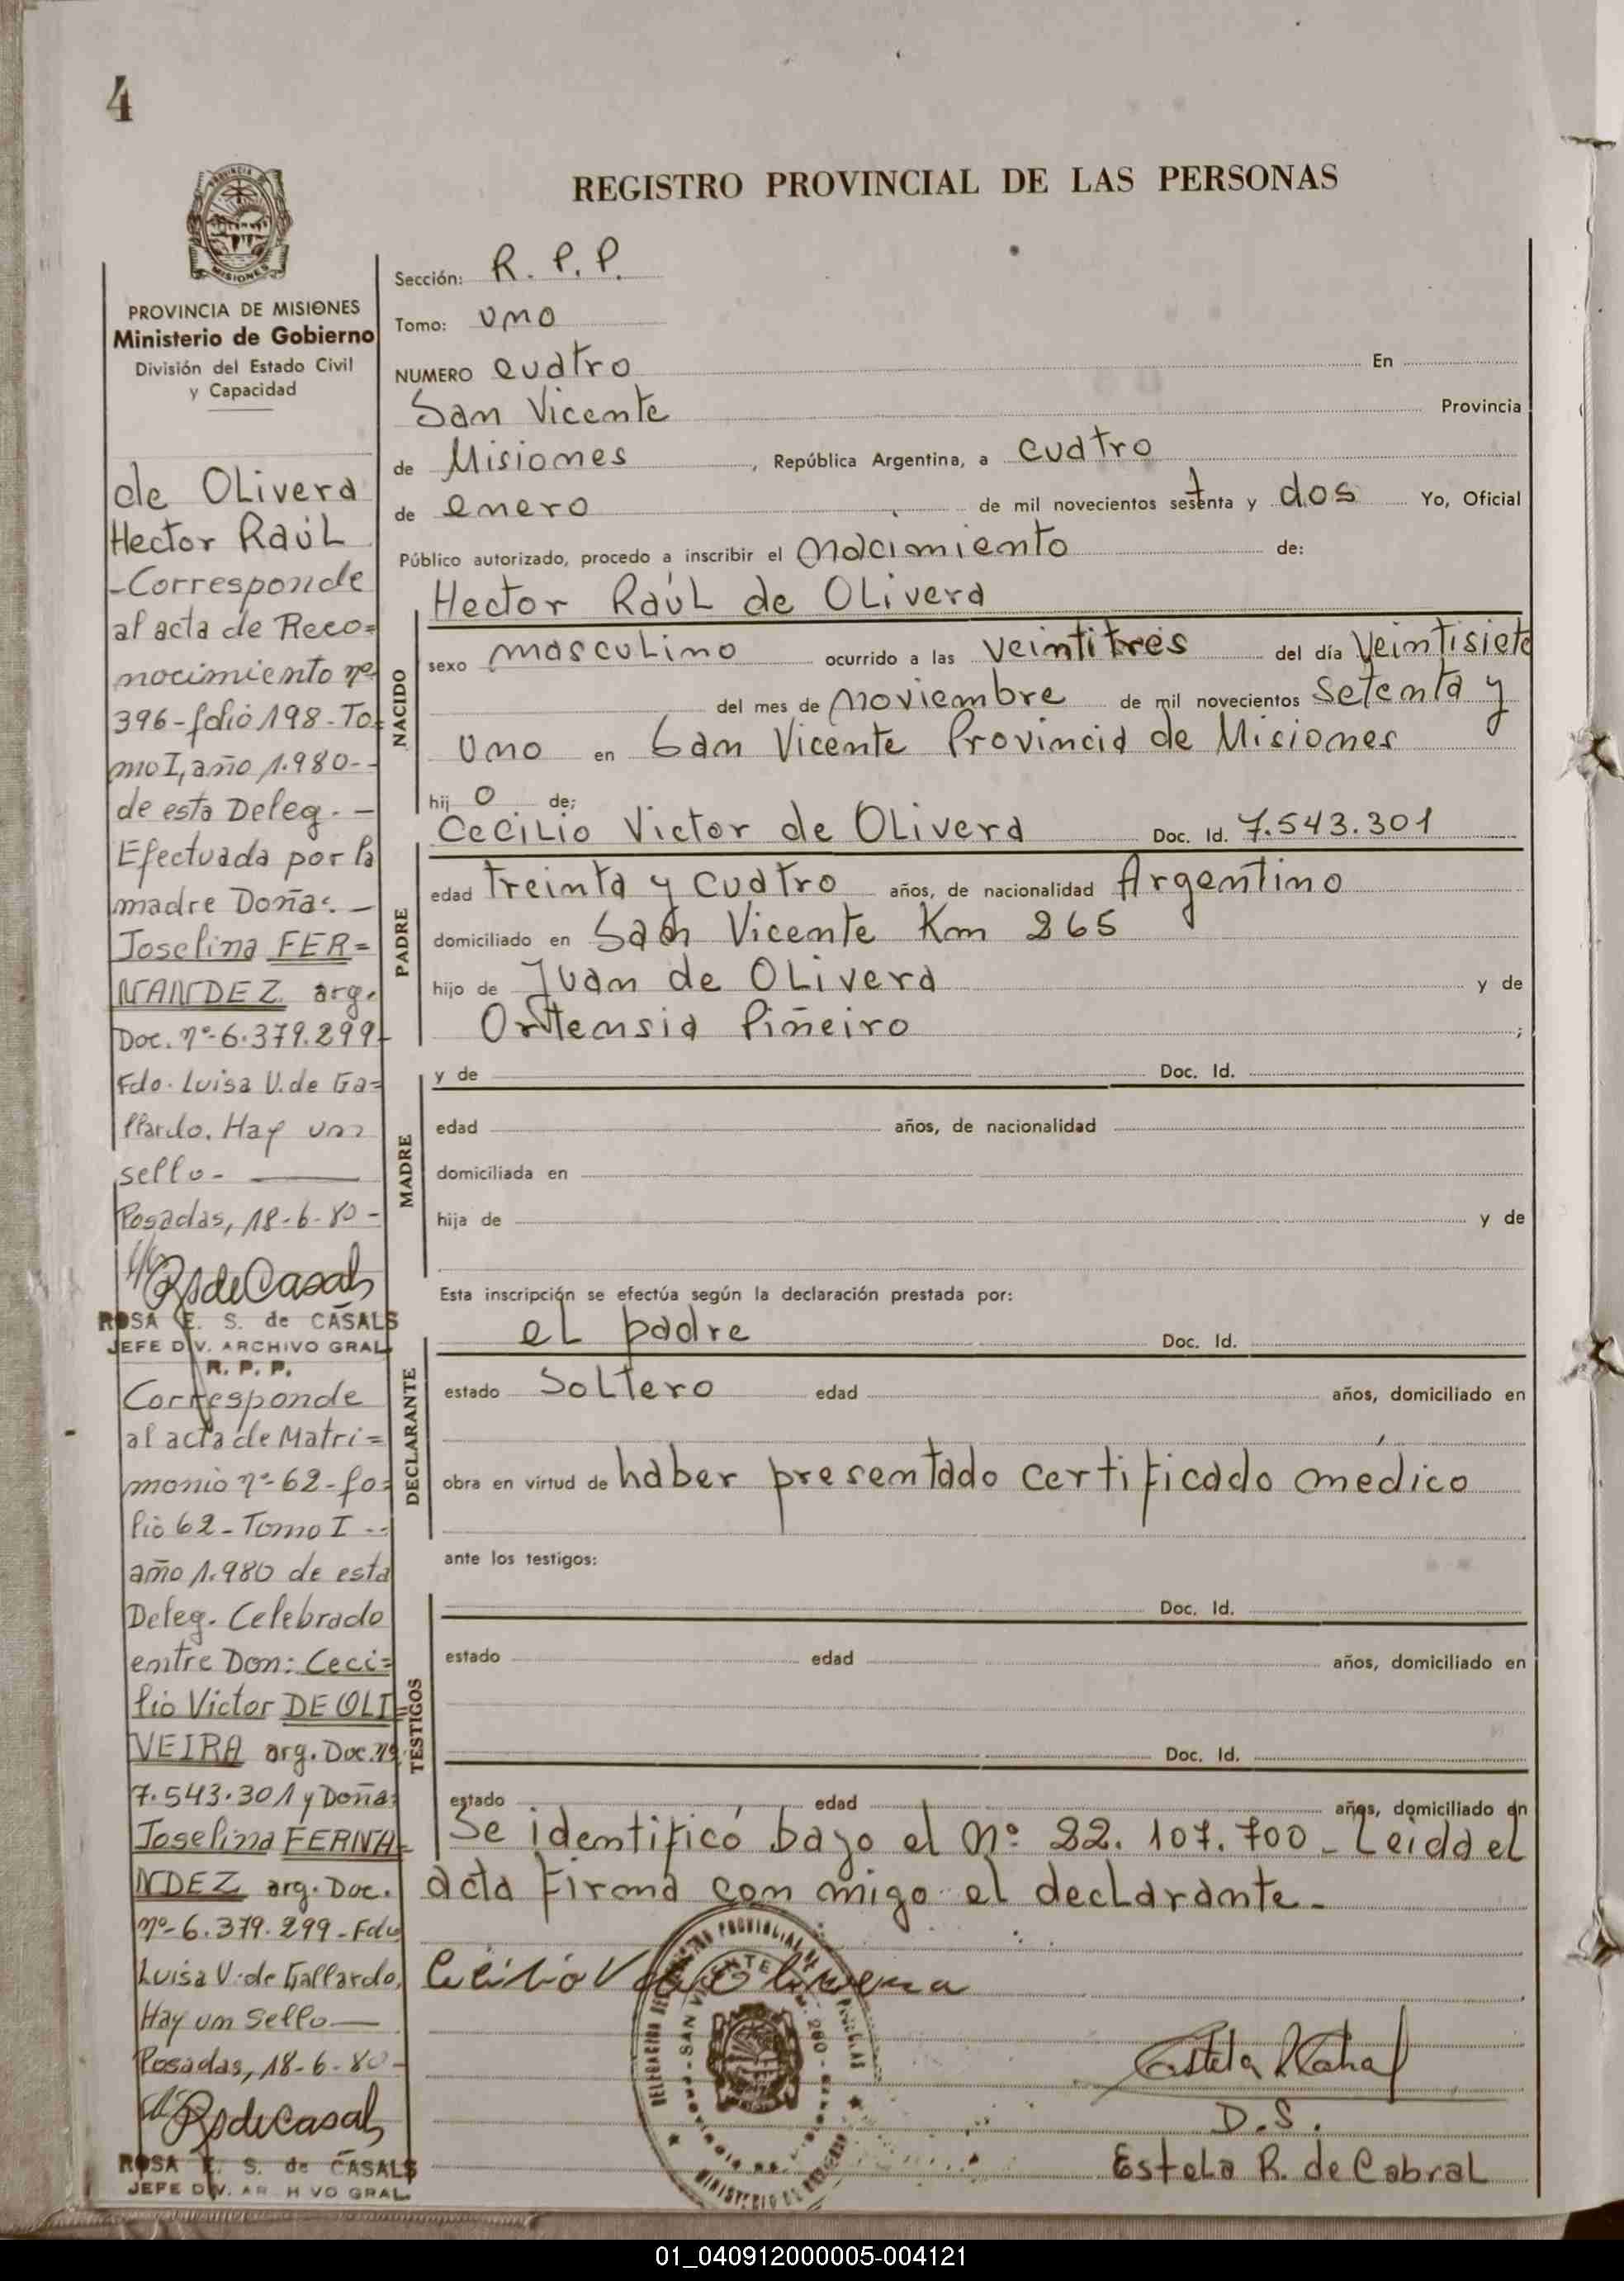 4
REGISTRO PROVINCIAL DE LAS PERSONAS
PROVINCIA DE MISIONES
Ministerio de Gobierno
División del Estado Civil
y Capacidad
de OLivera
Hector RaúL
-Corresponde
al acta de Reco=
nocimiento nº
396-folio 198-To=
mo I, año 1.980--
de esta Deleg.-
Efectuada por la
madre Doña:.-
Joselina FER=
NANDEZ arg.
Doc. nº-6.379.299-
Fdo. Luisa V. de Ga=
llardo. Hay un
sello-
Posadas, 18-6-80-
RSdeCasals
ROSA E. S. de CASALS
JEFE DIV. ARCHIVO GRAL.
R. P. P.
Corresponde
al acta de Matri=
monio nº-62-fo=
lio 62-Tomo I --
año 1.980 de esta
Deleg. Celebrado
entre Don: Ceci=
lio Victor DE OLI=
VEIRA arg. Doc. nº
7.543.301 y Doña:
Joselina FERNA=
NDEZ arg. Doc.
nº-6.379.299-Fdo
Luisa V. de Gallardo.
Hay un sello-
Posadas, 18-6-80-
RSdeCasals
ROSA E. S. de CASALS
JEFE DIV. AR H VO GRAL.
Sección: R. P. P.
Tomo: uno
NUMERO cuatro En
San Vicente Provincia
de Misiones, República Argentina, a cuatro
de enero de mil novecientos setenta y dos Yo, Oficial
Público autorizado, procedo a inscribir el nacimiento de:
Hector RaúL de OLivera
NACIDO
sexo mascuLino ocurrido a las veintitres del día Veintisiete
del mes de noviembre de mil novecientos setenta y
uno en San Vicente Provincia de Misiones
hij o de;
CeciLio Victor de OLivera Doc. Id. 7.543.301
PADRE
edad treinta y cuatro años, de nacionalidad Argentino
domiciliado en San Vicente Km 265
hijo de Juan de OLivera y de
Ortensia Piñeiro;
MADRE
y de Doc. Id.
edad años, de nacionalidad
domiciliada en
hija de y de
Esta inscripción se efectúa según la declaración prestada por:
eL padre Doc. Id.
DECLARANTE
estado SoLtero edad años, domiciliado en
obra en virtud de haber presentado certificado médico
ante los testigos:
TESTIGOS
Doc. Id.
estado edad años, domiciliado en
Doc. Id.
estado edad años, domiciliado en
Se identificó bajo el nº 22.107.700-Leida el
acta firma con migo el decLarante-
Cecilio V de Olivera
SAN VICENTE
D.S.
EsteLa R. de CabraL
01_040912000005-004121